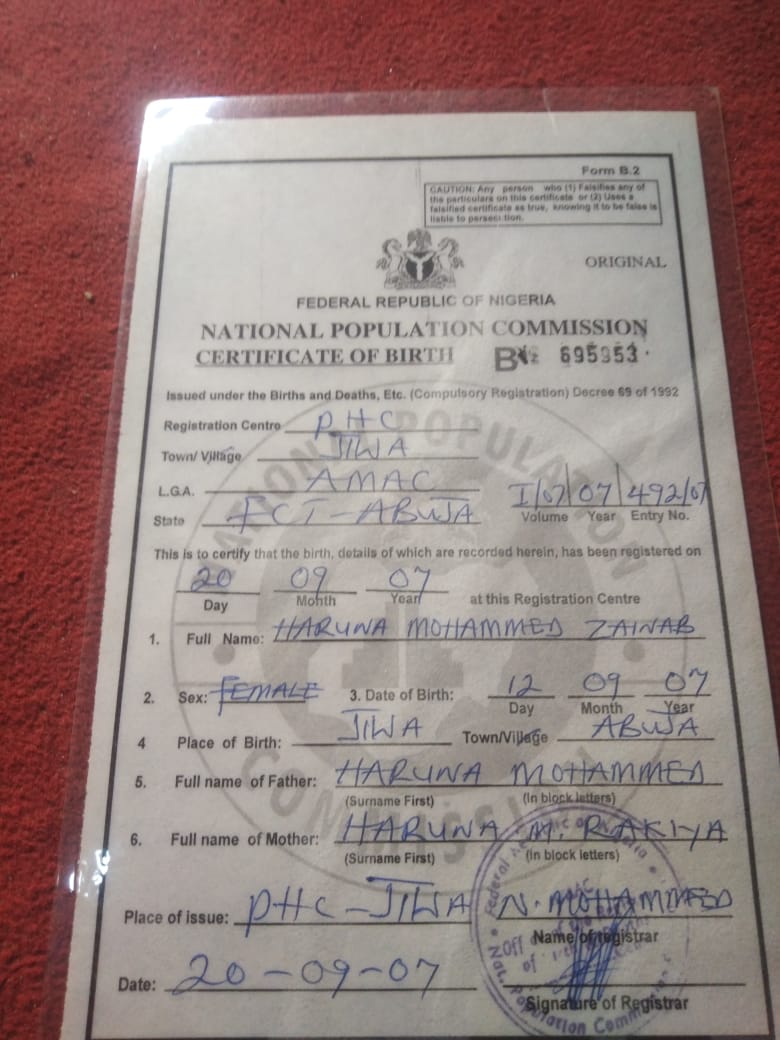 Form B.2
CAUTION: Any person who (1) Falsifies any of
the particulars on this certificate or (2) Uses a
falsified certificate as true, knowing it to be false is
liable to persecution.
ORIGINAL
FEDERAL REPUBLIC OF NIGERIA
NATIONAL POPULATION COMMISSION
CERTIFICATE OF BIRTH B 695353
Issued under the Births and Deaths, Etc. (Compulsory Registration) Decree 69 of 1992
Registration Centre PHC
Town/ Village JIWA
L.G.A. AMAC
State FCT-ABUJA I/07 07 492/07
Volume Year Entry No.
This is to certify that the birth, details of which are recorded herein, has been registered on
20 09 07 at this Registration Centre
Day Month Year
1. Full Name: HARUNA MOHAMMED ZAINAB
2. Sex: FEMALE 3. Date of Birth: 12 09 07
Day Month Year
4 Place of Birth: JIWA Town/Village ABUJA
5. Full name of Father: HARUNA MOHAMMED
(Surname First) (In block letters)
6. Full name of Mother: HARUNA M. RAKIYA
(Surname First) (In block letters)
Place of issue: PHC-JIWA N. MOHAMMED
Name of registrar
Date: 20-09-07
Signature of Registrar
NATIONAL POPULATION COMMISSION
Federal Republic of Nigeria
Nat. Population Commission